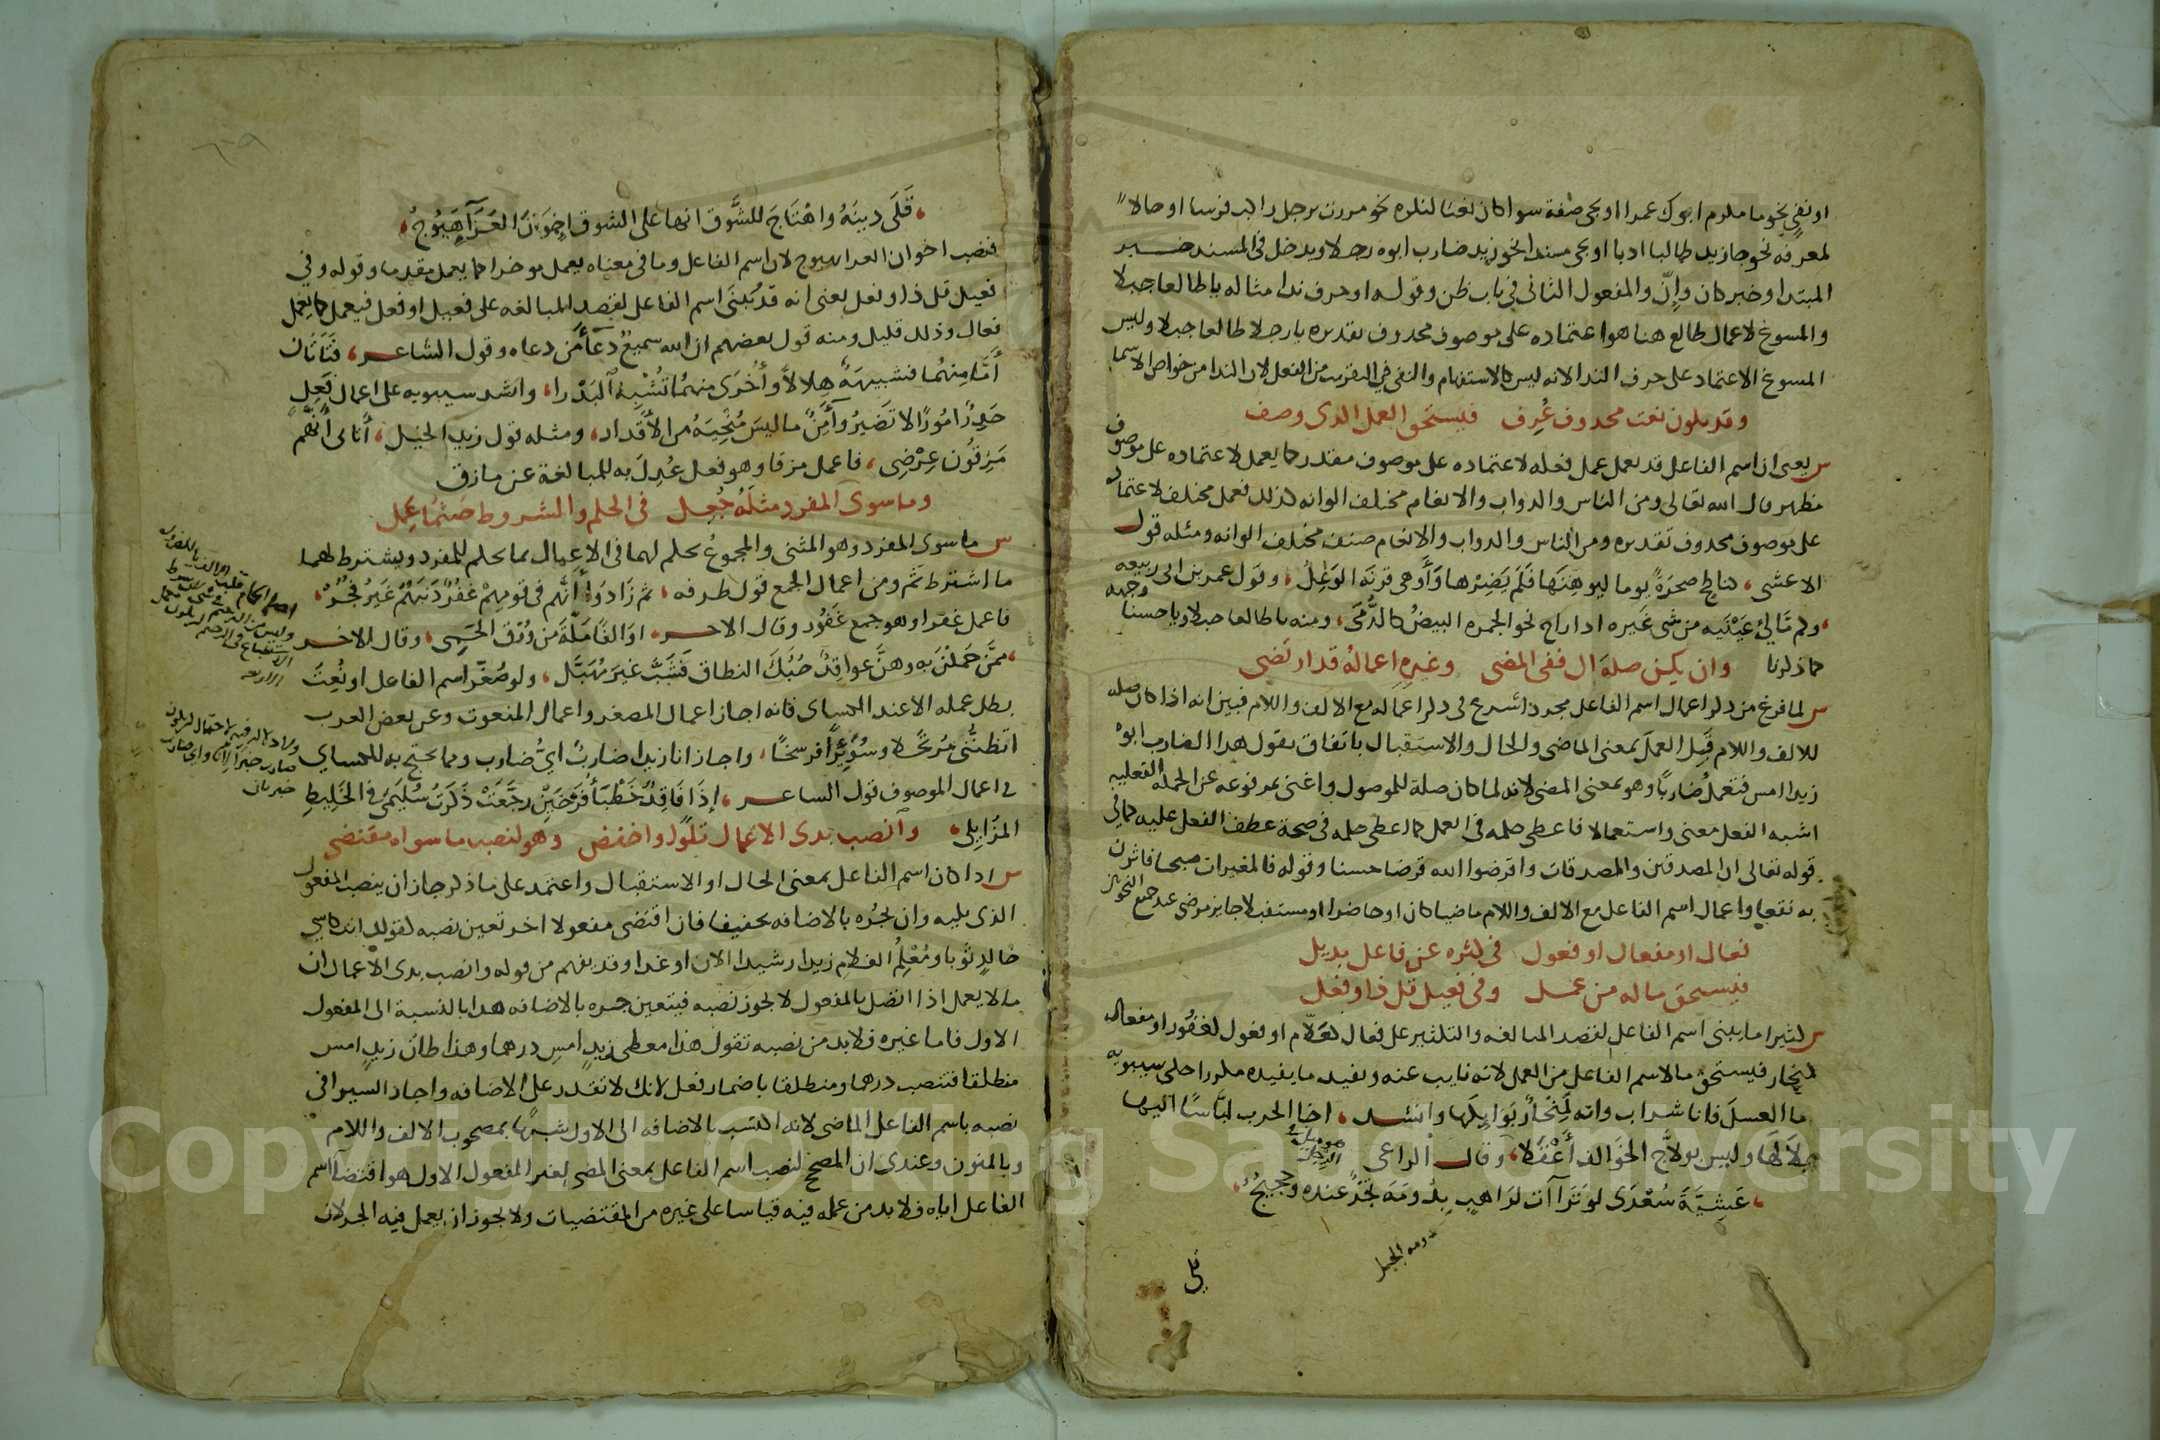 او نفي نحو ما مكرم ابوك عمرا او يجي صفة سوا كان نعتا لنكره نحو مررت برجل راكب فرسا او حالا
لمعرفه نحو جا زيد طالبا ادبا او يجي مسندا نحو زيد ضارب ابوه رجلا ويدخل في المسند خبر
المبتدا وخبر كان وإنّ والمفعول الثاني في باب ظن وقوله او حرف ندا مثاله يا طالعا جبلا
والمسوغ لاعمال طالع هنا هو اعتماده على موصوف محذوف تقديره يا رجلا طالعا جبلا وليس
المسوغ الاعتماد على حرف الندا لانه ليس كالاستفهام والنفي في التقريب من الفعل لان الندا من خواص الاسما
وقد يكون نعت محذوف عُرِف فيستحق العمل الذي وصف
س يعني ان اسم الفاعل قد يعمل عمل فعله لاعتماده على موصوف مقدر كما يعمل لاعتماده على موصوف
مظهر قال الله تعالى ومن الناس والدواب والانعام مختلف الوانه كذلك فعمل مختلف لاعتماده
على موصوف محذوف تقديره ومن الناس والدواب والانعام صنف مختلف الوانه ومثله قول
الاعشى كناطح صخرةً يوما ليوهِنَها فلَم يَضِرْها وَأَوهى قرنَه الوَعِلُ وقول عمر بن ابي ربيعه
وكم مَالِئ عَيْنَيه من شي غَيره اذا راح نحو الجمره البيضُ كالدُّمَى ومنه يا طالعا جبلا ويا حسنا وجهه
كما ذكرنا وان يكن صلة ال ففي المضي وغيره إعمالُه قد ارتضي
س لما فرغ من ذكر اعمال اسم الفاعل مجردا شرع في ذكر اعماله مع الالف واللام فبين انه اذا كان صله
للالف واللام قَبِل العملَ بمعنى الماضي والحال والاستقبال باتفاق تقول هذا الضارب ابوه
زيدا امس فتعمل ضاربًا وهو بمعنى المضي لانه لما كان صلة للموصول واغنى بمرفوعه عن الجملة الفعليه
اشبه الفعل معنى واستعمالا فاعطي حكمه في العمل كما اعطي حكمه في صحة عطف الفعل عليه كما في
قوله تعالى ان المصدقين والمصدقات واقرضوا الله قرضا حسنا وقوله فالمغيرات صبحا فاثرن
به نقعا واعمال اسم الفاعل مع الالف واللام ماضيا كان او حاضرا او مستقبلا جايز مرضي عند جميع النحويين
فعال او مفعال او فعول في كثره عن فاعل بديل
فيستحق ما له من عمل وفي فعيل قل ذا وفعل
س كثيرا ما يبنى اسم الفاعل لقصد المبالغه والتكثير على فعال كعَلّام او فعول كغفُور او مفعال
كمنحار فيستحق ما لاسم الفاعل من العمل لانه نايب عنه ويفيد ما يفيده مكررا حكى سيبويه
اما العسلَ فانا شراب وانه لمِنْحَارٌ بَوَايِكَها وانشد اخا الحرب لبَّاسًا اليها
جِلالَها وليس بولاَّج الخَوالف أَعْقَلا وقال الراعي
عَشِيَّةَ سُعْدَى لو تَرَآات لرَاهبٍ بدُومَةَ تَجْرٌ عنده وحجيجُ
دومه الجندل
قلى
قَلَى دينَهُ واهْتاجَ للشَّوق انها على الشوق اخوَنَ العَزَآ هَيُوجُ
فنصب اخوان العزا بهيوج لان اسم الفاعل وما في معناه يعمل موخرا كما يعمل مقدما وقوله وفي
فعيل قل ذا وفعل يعني انه قد يُبنَى اسم الفاعل لقصد المبالغه على فعيل او فعل فيعمل كما يعمل
فعال وذلك قليل ومنه قول بعضهم ان الله سميعٌ دُعَآَ مَن دعاه وقول الشاعر فَتَاتَان
أَمَّا مِنهُما فشبيهَةٌ هِلالاً وأُخْرَى منهمُا تُشْبِهُ البَدْرا وانشد سيبويه على اعمال فَعِلٍ
حَذِرٌ امُورًا لا تَضيرُ وآَمِنٌ ما ليسَ مُنْجِيَهُ من الأَقدار ومثله قول زيد الخيل أَتاني أَنَّهُم
مَزِقُون عِرْضِي فاعمل مزقا وهو فعل عُدِلَ به للمبالغة عن مازق
وما سوى المفرد مثلَهُ جُعِل في الحكم والشروط حيثُما عمل
س ما سوى المفرد وهو المثنى والمجموعُ يحكم لهما في الاعمال بما يحكم للمفرد ويشترط لهما
ما اشترط ثَم ومن اعمال الجمع قول طرفه ثم زَادوا أَنَّهم في قومِهِمْ غُفُرٌ ذَنبَهُمُ غَيرُ فُخُرْ
فاعمل غفرا وهو جمع غَفُور وقال الاخر اوَالفًا مكَّةَ من وُرْقِ الحَمِي وقال الاخر
ممَّن حَمَلْنَ به وهنَّ عواقِدٌ حُبُكَ النطاق فَشَبَّ غيرَ مُهَبَّل ولو صُغّرَ اسم الفاعل او نُعِتَ
بطل عمله الا عند الكسائي فانه اجاز اعمال المصغر واعمال المنعوت وعن بعض العرب
اتَظنُّني مُرتَحلا وسُوَيِّرًا فرسخًا واجاز انا زيدا ضاربٌ ايُّ ضارب ومما يحتج به للكسائي
في اعمال الموصوف قول الشاعر إذَا فَاقِدٌ خَطْبَآءُ فَرْخَيْنِ رجَّعَتْ ذَكَرتُ سُلَيمَى في الخَليطِ
المزَايِل وانصب بذى الاعمال تلوا واخفض وهو لنصب ما سواه مقتضى
س اذا كان اسم الفاعل بمعنى الحال او الاستقبال واعتمد على ما ذكر جاز ان ينصب المفعول
الذي يليه وان يجُره بالاضافه تخفيفا فان اقتضى مفعولا اخر تعين نصبه كقولك انت كاسي
خالدٍ ثوبا ومُعْلِمُ الغلام زيدا رشيدا الان او غدا وقد يفهم من قوله وانصب بذى الاعمال ان
ما لا يعمل اذا اتصل بالمفعول لا يجوز نصبه فيتعين جره بالاضافه هذا بالنسبة الى المفعول
الاول فاما غيره فلا بد من نصبه تقول هذا معطي زيدٍ امسِ درهما وهذا ظان زيدٍ امس
منطلقا فتنصب درهما ومنطلقا باضمار فعل لانك لا تقدر على الاضافه واجاز السيرافي
نصبه باسم الفاعل الماضي لانه اكتسب بالاضافه الى الاول شبهًا بمصحوب الالف واللام
وبالمنون وعندي ان المصحح لنصب اسم الفاعل بمعنى المضي لغير المفعول الاول هو اقتضآ اسم
الفاعل اياه فلا بد من عمله فيه قياسا على غيره من المقتضيات ولا يجوز ان يعمل فيه الجر لان
Copyright © King Saud University